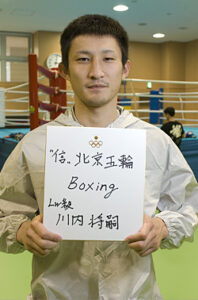 "信" 北京五輪
Boxing
Lw級
川内 将嗣